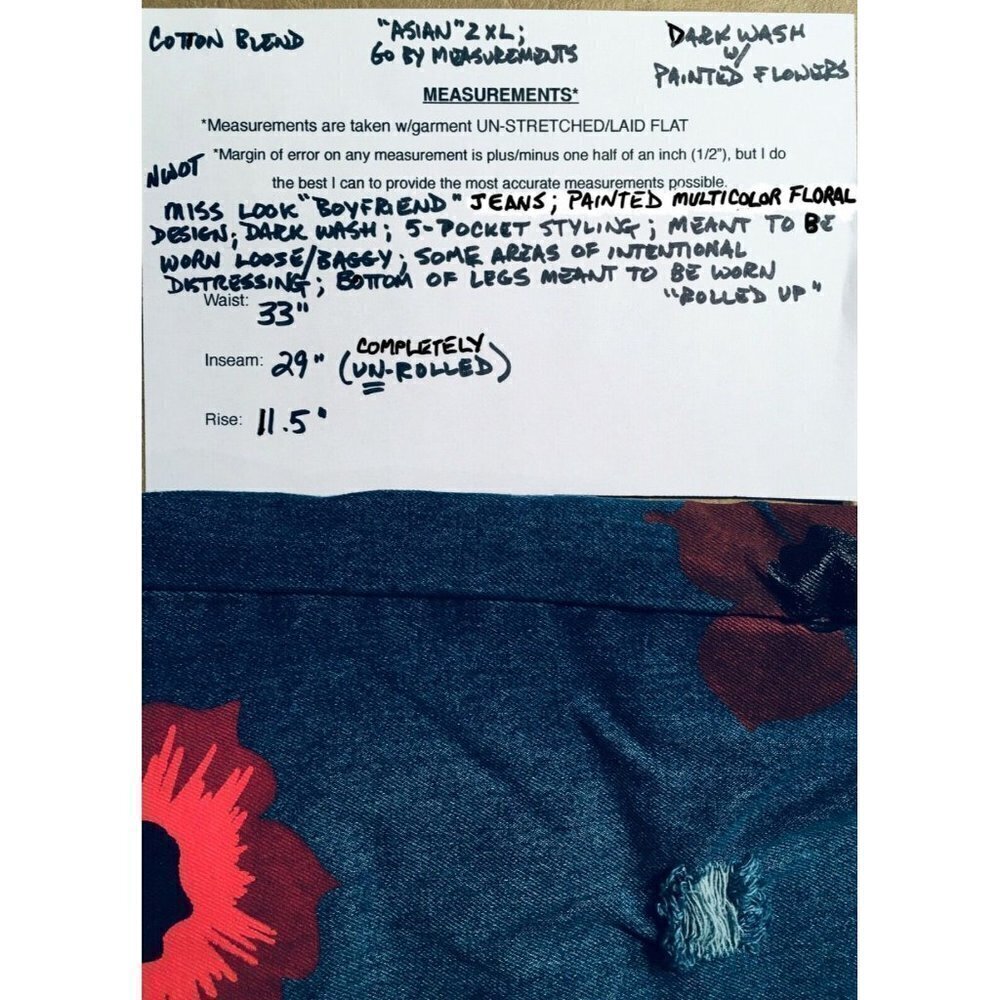 COTTON BLEND
"ASIAN" 2XL;
GO BY MEASUREMENTS
DARK WASH
W/
PAINTED FLOWERS
MEASUREMENTS*
*Measurements are taken w/garment UN-STRETCHED/LAID FLAT
*Margin of error on any measurement is plus/minus one half of an inch (1/2"), but I do
the best I can to provide the most accurate measurements possible.
NWOT
MISS LOOK "BOYFRIEND" JEANS; PAINTED MULTICOLOR FLORAL
DESIGN; DARK WASH; 5-POCKET STYLING; MEANT TO BE
WORN LOOSE/BAGGY; SOME AREAS OF INTENTIONAL
DISTRESSING; BOTTOM OF LEGS MEANT TO BE WORN
"ROLLED UP"
Waist: 33"
Inseam: 29" (COMPLETELY
UN-ROLLED)
Rise: 11.5"